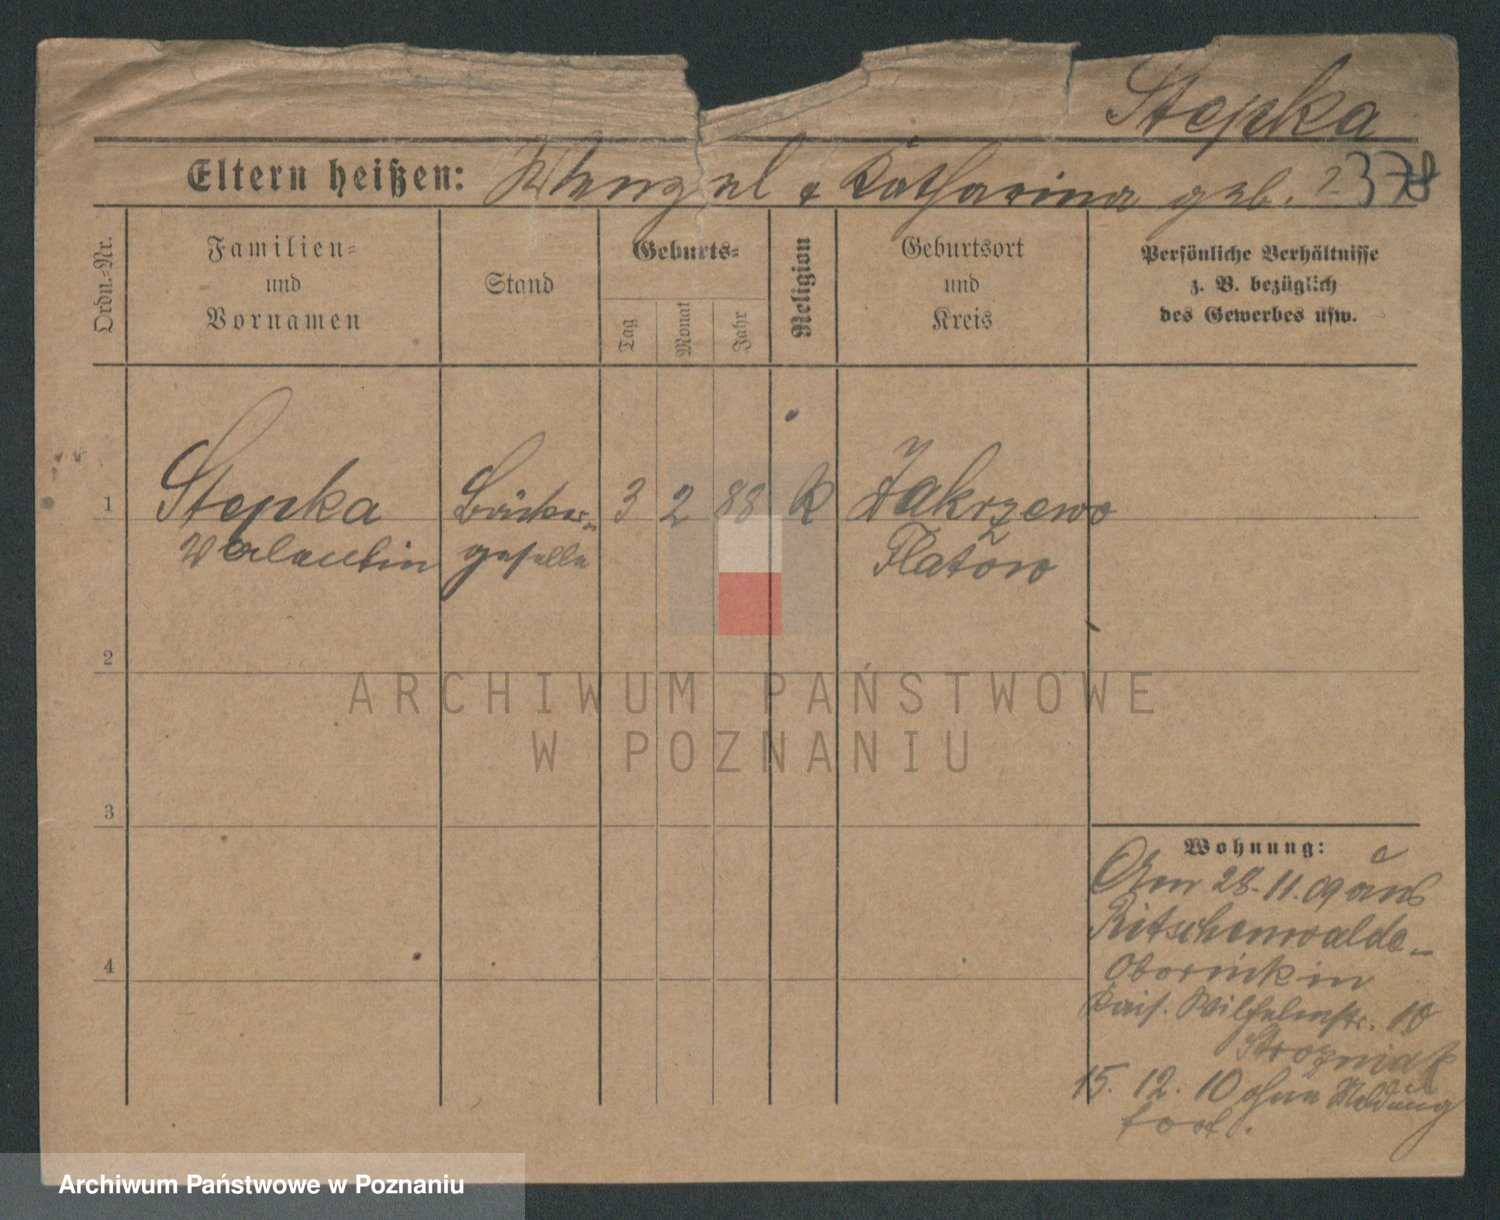 Stepka
Eltern heißen: Wenzel & Katharina geb. ? 378
Ordn.-Nr.
Familien-
und
Vornamen
Stand
Geburts-
Tag
Monat
Jahr
Religion
Geburtsort
und
Kreis
Persönliche Verhältnisse
z. B. bezüglich
des Gewerbes usw.
1 Stepka Bäcker- 3 2 88 K Zakrzewo
Valentin geselle Flatow
2
ARCHIWUM PAŃSTWOWE
W POZNANIU
3
Wohnung:
Am 28.11.09 aus
Ritschenwalde-
Obornik in
Kais. Wilhelmstr. 10
Strozniak
4
15. 12. 10 ohne Meldung
fort.
Archiwum Państwowe w Poznaniu